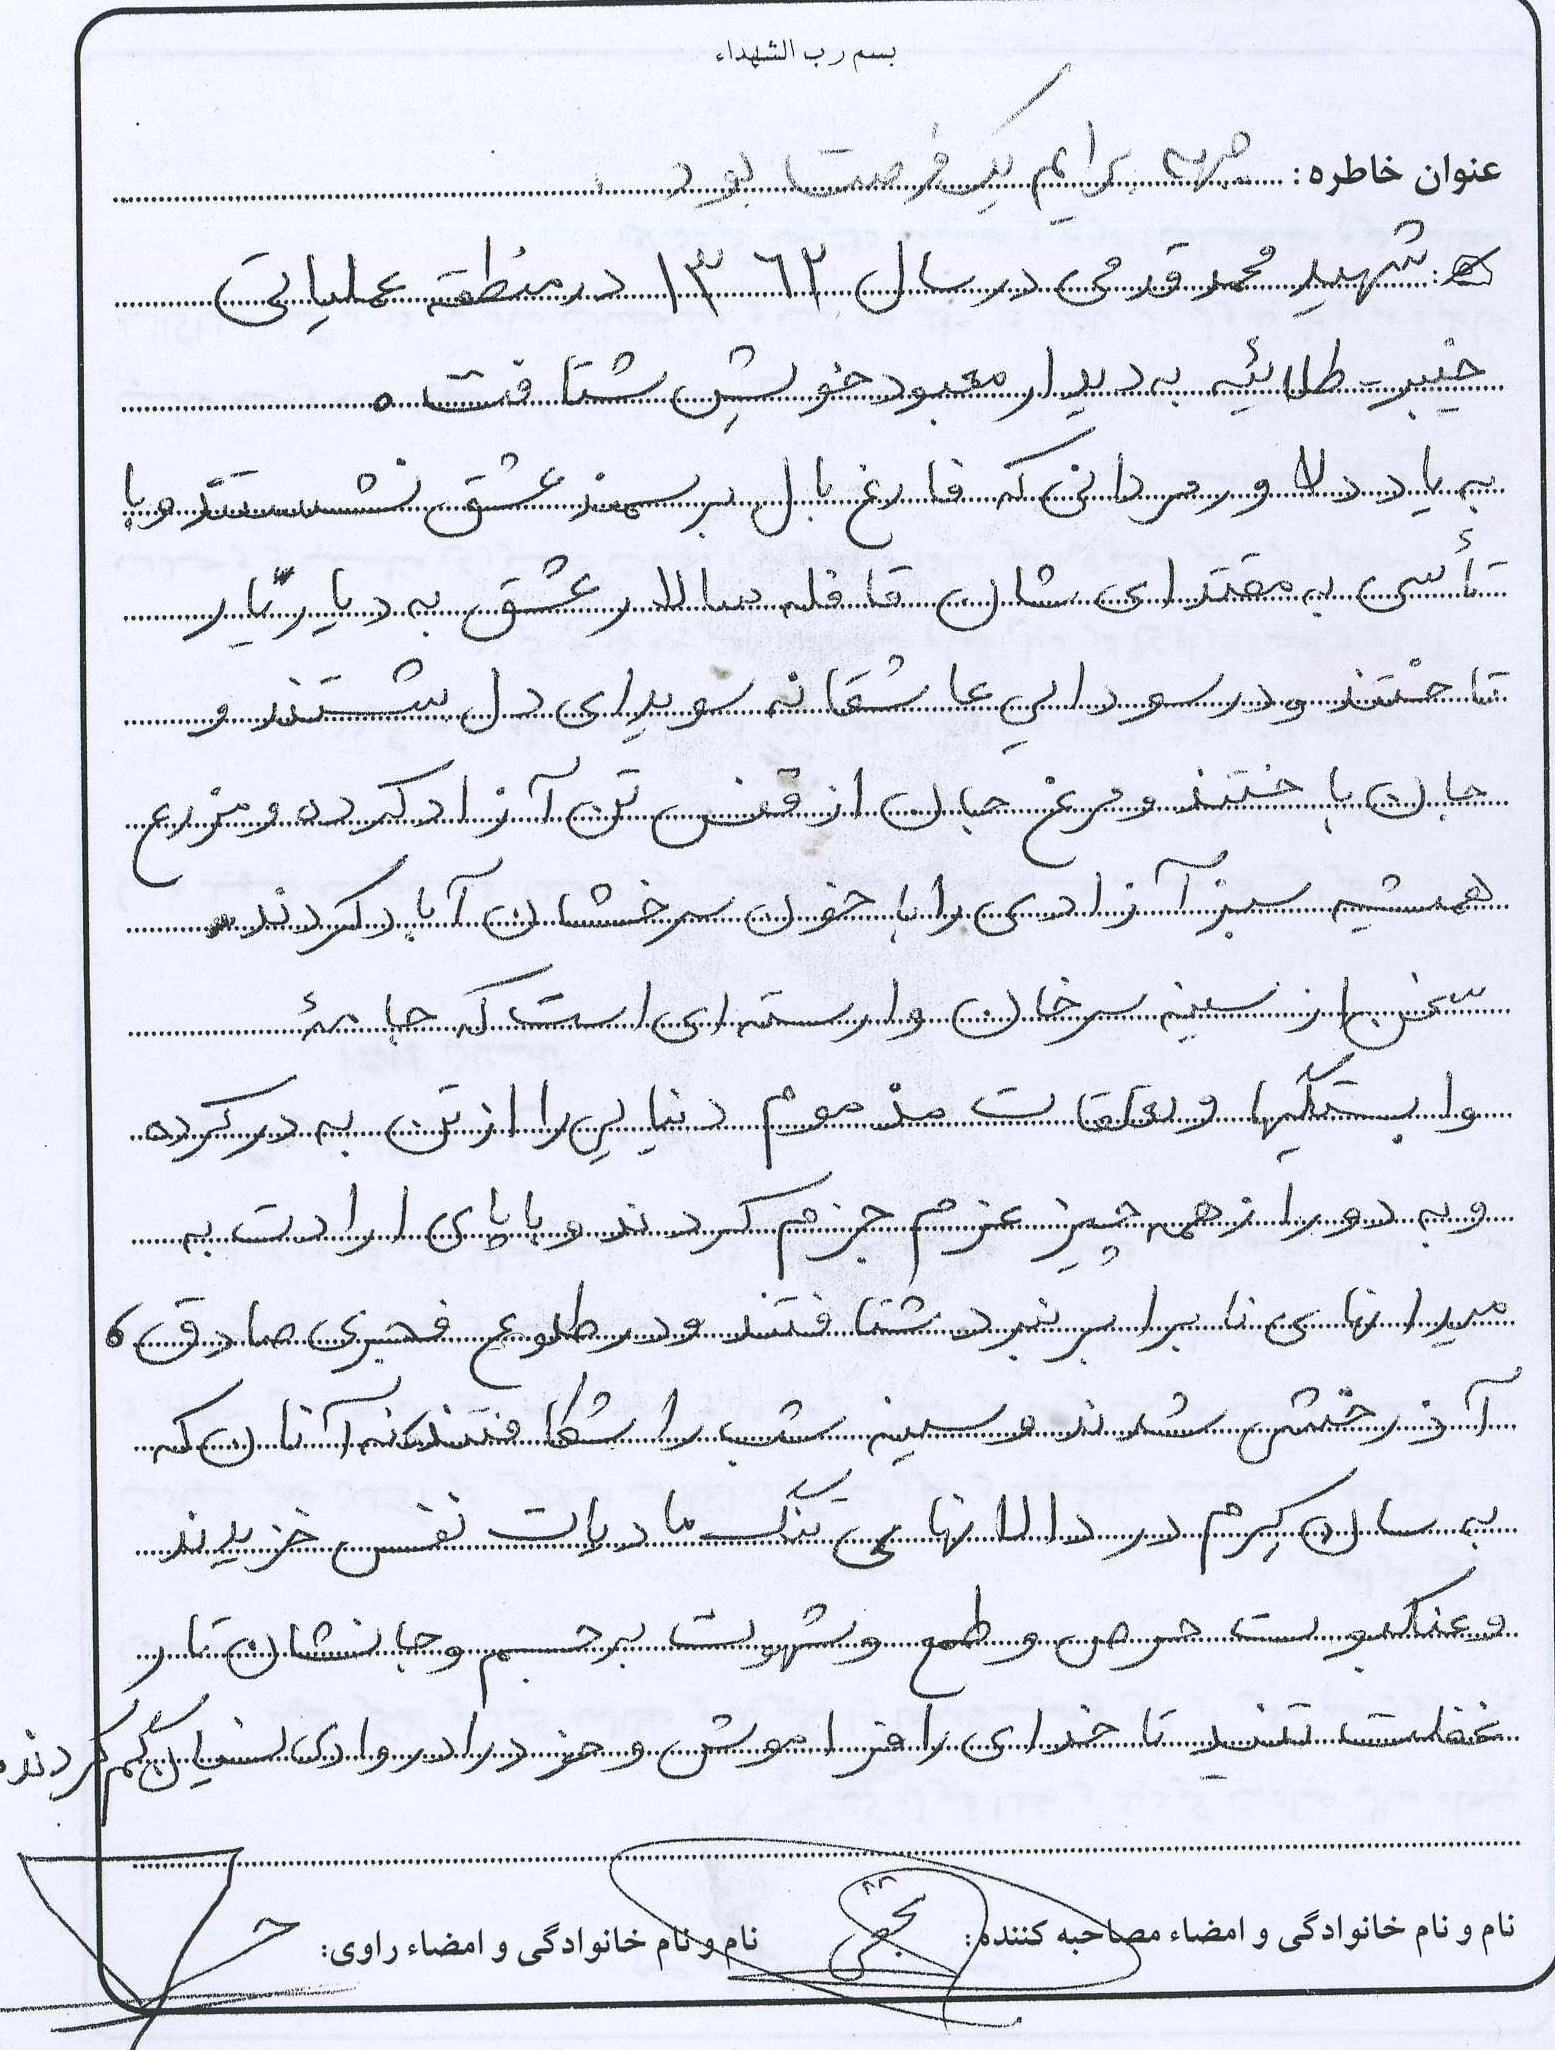 بسم رب الشهداء
عنوان خاطره: جبهه برایم یک فرصت بود
شهید محمد قدمی در سال ۱۳۶۲ در منطقه عملیاتی
خیبر - طلائیه به دیدار معبود خویش شتافت.
به یاد دلاور مردانی که فارغ بال بر سمند عشق نشستند و با
تأسی به مقتدای شان قافله سالار عشق به دیار یار
تاختند و در سودایی عاشقانه سویدای دل شستند و
جان باختند و مرغ جان از قفس تن آزاد کرده و مزرع
همیشه سبز آزادی را با خون سرخشان آباد کردند.
سخن از سینه سرخان وارسته ای است که جامهٔ
وابستگیها و تعلقات مذموم دنیایی را از تن به در کرده
و به دور از همه چیز عزم جزم کردند و با پای ارادت به
میدانهای نابرابر نبرد شتافتند و در طلوع فجری صادق،
آذرخش شدند و سینه شب را شکافتند، نه آنان که
به سان کرم در دالانهای تنگ مادیات نفس خزیدند
و عنکبوت حرص و طمع و شهوت بر جسم و جانشان تار
غفلت تنید تا خدای را فراموش و خود را در وادی نسیان گم کردند.
نام و نام خانوادگی و امضاء مصاحبه کننده: نام و نام خانوادگی و امضاء راوی: